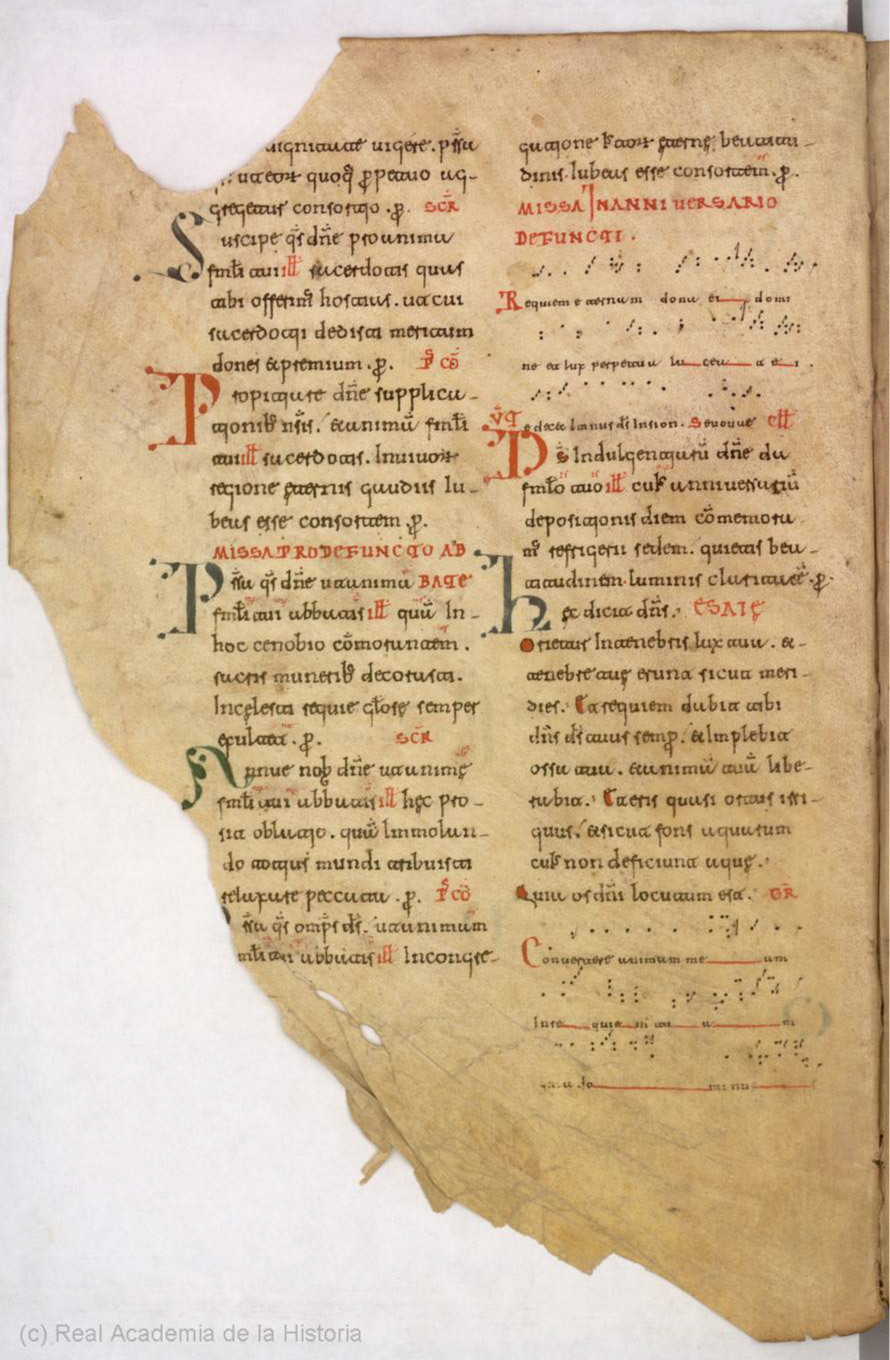 dignitate uigere. p̃sta
ut eor̃ quoq; ꝑpetuo ag-
gregetur consortio .ꝑ. SCR̃
Suscipe q̃s dñe pro anima
famłi tui iłł sacerdotis quas
tibi offerim̃ hostias. ut cui
sacerdotii dedisti meritum
dones & premium .ꝑ. P̃ CÕ
Propitiare dñe supplica-
tionib; nr̃is. & animã famłi
tui iłł sacerdotis. In uiuor̃
regione ęternis gaudiis iu-
beas esse consortem .ꝑ.
MISSA PRO DEFUNCTO AB
P̃sta q̃s dñe ut animã BATE
famłi tui abbatis iłł quã In-
hoc cenobio cõmorantem.
sacris munerib; decorasti.
In cęlesti requie głorę semper
exultet .ꝑ. SCR̃
Annue nob̃ dñe ut animę
famłi tui abbatis iłł hęc pro-
sit oblatio. quã Immolan-
do totius mundi tribuisti
relaxare peccata .ꝑ. P̃ CÕ
p̃sta q̃s omp̃s ds̃. ut animam
famłi tui abbatis iłł In congre-
gatione iustor̃ ęternę beatitu-
dinis. Iubeas esse consortem .ꝑ.
MISSA IN ANNIUERSARIO
DEFUNCTI .
Requiem eternam dona ei domi
ne et lux perpetua luceat ei .
V̄ Te decet ymnus ds̃ In sion. Seuouae CŁŁ
Ds̃ Indulgentiarũ dñe da
famło tuo iłł cuı̃ anniuersariũ
depositionis diem cõmemora
m̃ refrigerii sedem. quietis bea-
titudinem. luminis claritatem .ꝑ.
hęc dicit dñs. ESAIĘ
Orietur In tenebris lux tua. &-
tenebre tuę erunt sicut meri-
dies. Et requiem dabit tibi
dñs ds̃ tuus semp̃. & Implebit
ossa tua. & animã tuã libe-
rabit. Et eris quasi ortus irri-
guus. & sicut fons aquarum
cuı̃ non deficiunt aquę.
Quia os dñi locutum est. GR̃
Conuertere animam meam
In requiem tuam
quia dominus
(c) Real Academia de la Historia